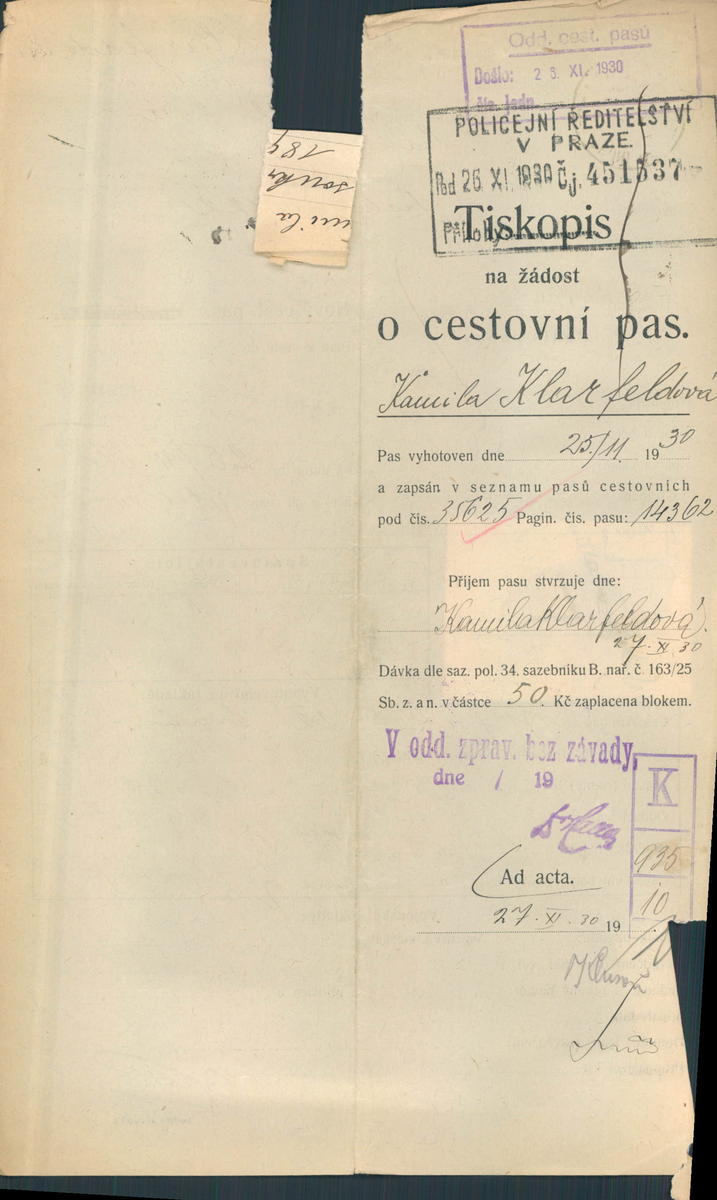 Odd. cest. pasů
Došlo: 26. XI. 1930
POLICEJNÍ ŘEDITELSTVÍ
V PRAZE.
Pod 26 XI. 1930 Čj. 451537
Přílohy
Tiskopis
na žádost
o cestovní pas.
Kamila Klarfeldová
Pas vyhotoven dne 25./11. 1930
a zapsán v seznamu pasů cestovních
pod čís. 35625 Pagin. čís. pasu: 14362
Příjem pasu stvrzuje dne:
Kamila Klarfeldová.
27. XI. 30
Dávka dle saz. pol. 34. sazebníku B. nař. č. 163/25
Sb. z. a n. v částce 50. Kč zaplacena blokem.
V odd. zprav. bez závady,
dne / 19
K
935
10
Ad acta.
27. XI. 30 19
mila
189